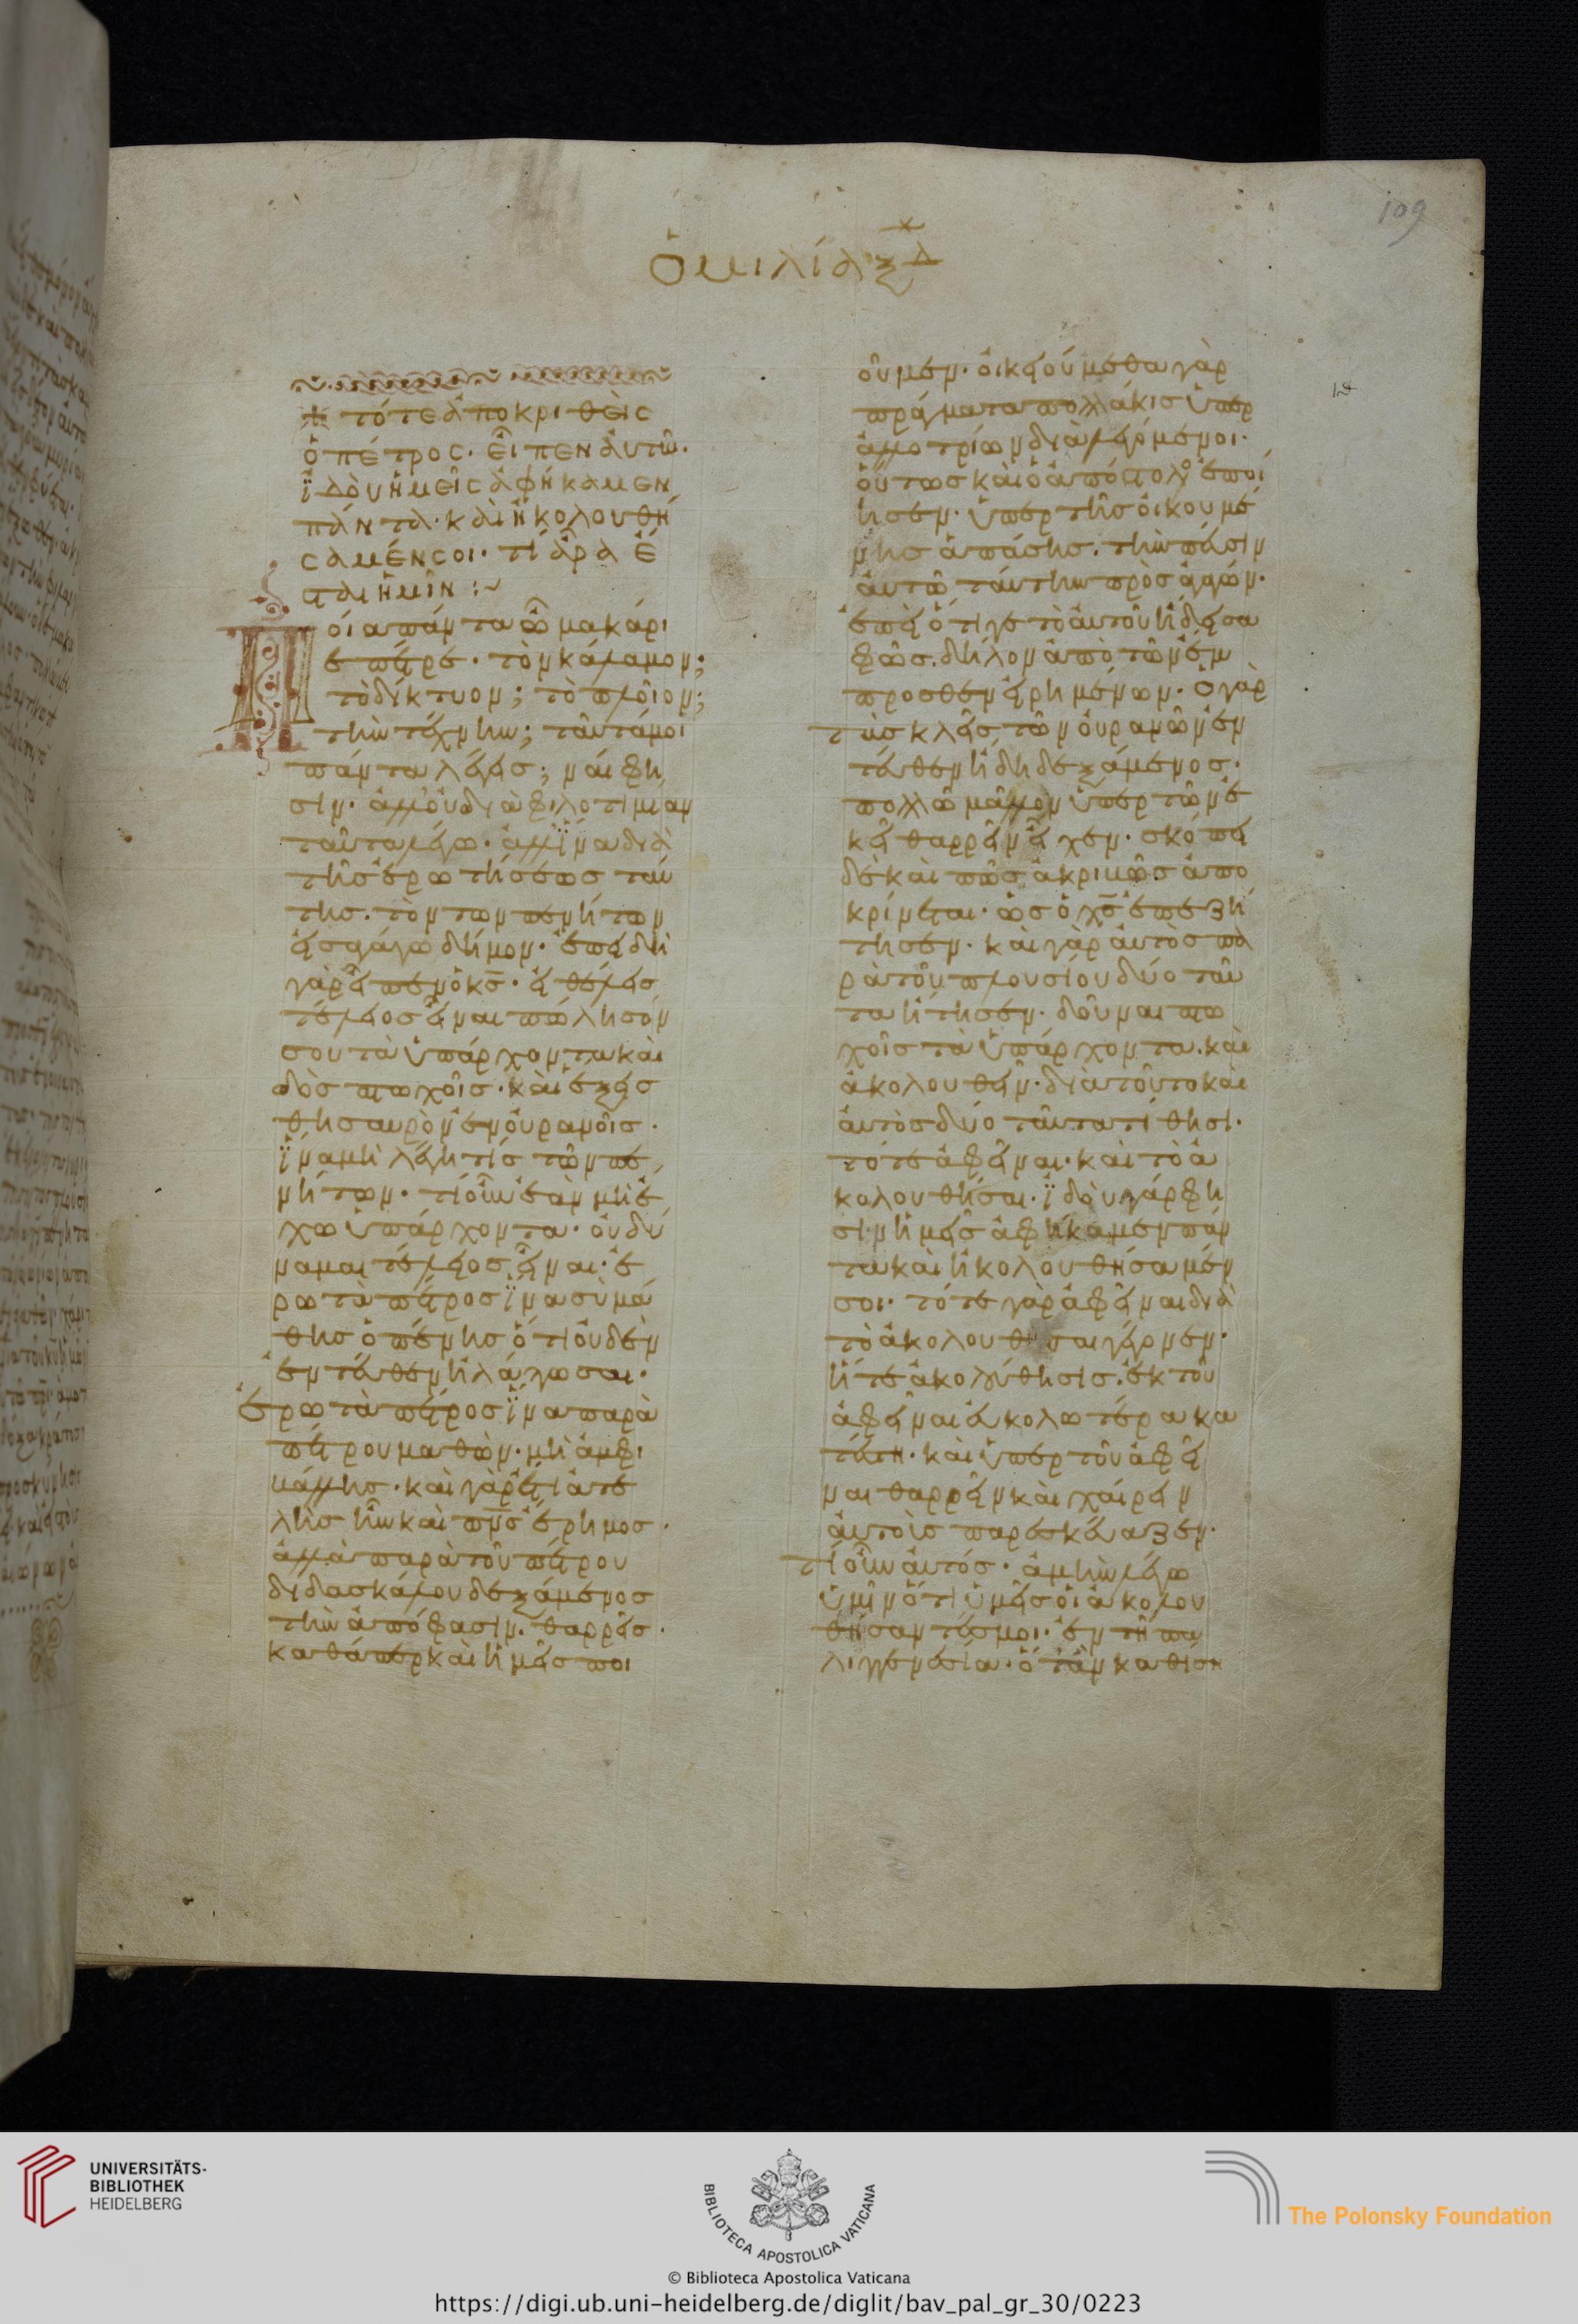 109
ὁμιλία ξδ
τότε ἀποκριθεὶς
ὁ πέτρος· εἶπεν ἀυτῶ·
ϊδοὺ ἡμεῖς ἀφήκαμεν
πάντα· καὶ ἠκολουθή
σαμέν σοι· τί ἄρα ἔ
σται ἡμῖν :~
Ποῖα πάντα ὦ μακάρι
ε πέτρε· τὸν κάλαμον;
τὸ δίκτυον; τὸ πλοῖον;
τὴν τέχνην; ταῦτά μοι
πάντα λέγεις; ναί φη
σιν· ἀλλ' οὐ διὰ φιλοτιμίαν
ταῦτα λέγω· ἀλλ' ϊνα διὰ
τῆς ἐρωτήσεως ταύ
της· τὸν των πενήτων
εἰσαγάγω δῆμον· ἐπειδὴ
γὰρ εἶπεν ὁ κς· εἰ θέλεις
τέλειος εἶναι πώλησόν
σου τὰ ὑπάρχοντα καὶ
δὸς πτωχοῖς· καὶ ἕξεις
θησαυρὸν ἐν οὐρανοῖς·
ϊνα μὴ λέγη τίς τῶν πε
νήτων· τί οὖν ἐὰν μὴ ἔ
χω ὑπάρχοντα· οὐ δύ
ναμαι τέλειος εἶναι· ἐ
ρωτᾶ πέτρος ϊνα σὺ μά
θης ὁ πένης ὅτι οὐδὲν
ἐντεῦθεν ἠλάττωσαι·
ἐρωτᾶ πέτρος ϊνα παρὰ
πέτρου μαθὼν· μὴ ἀμφι
βάλλης· καὶ γὰρ ἔτι ἀτε
λὴς ἦν καὶ πνς ἔρημος·
ἀλλὰ παρὰ τοῦ πέτρου
διδασκάλου δεξάμενος
τὴν ἀπόφασιν· θαρρεῖς·
καθάπερ καὶ ἡμεῖς ποι
οῦμεν· οἰκειούμεθα γὰρ
πράγματα πολλάκις ὑπερ
ἀλλοτρίων διαλεγόμενοι·
οὕτως καὶ ὁ ἀπόστολος ἐποί
ησεν· ὑπερ τῆς οἰκουμέ
νης ἁπάσης· τὴν πεῦσιν
ἀυτῶ ταύτην προσάγων·
ἐπεὶ ὅτι γε τὸ ἀυτοῦ ἤδει σα
φῶς· δῆλον ἀπὸ τῶν ἔμ
προσθεν εἰρημένων· ὁ γὰρ
τὰς κλεῖς τῶν οὐρανῶν ἐν
τεῦθεν ἤδη δεξάμενος·
πολλῶ μᾶλλον ὑπερ τῶν ἐ
κεῖ θαρρεῖν εἶχεν· σκόπει
δὲ καὶ πῶς ἀκριβῶς ἀπο
κρίνεται· ὡς ὁ χς ἐπεζή
τησεν· καὶ γὰρ ἀυτὸς πα
ρὰ τοῦ πλουσίου δύο ταῦ
τα ἤτησεν· δοῦναι πτω
χοῖς τὰ ὑπάρχοντα· καὶ
ἀκολουθεῖν· διὰ τοῦτο καὶ
ἀυτὸς δύο ταῦτα τίθησι·
τό τε ἀφεῖναι· καὶ τὸ ἀ
κολουθῆσαι· ϊδοὺ γάρ φη
σιν ἡμεῖς ἀφήκαμεν πάν
τα καὶ ἠκολουθήσαμέν
σοι· τό τε γὰρ ἀφεῖναι διὰ
τὸ ἀκολουθῆσαι γέγονεν·
ἥ τε ἀκολούθησις· ἐκ τοῦ
ἀφεῖναι ἐυκολωτέρα κα
τέστη· καὶ ὑπερ τοῦ ἀφεῖ
ναι θαρρεῖν καὶ χαίρειν
ἀυτοῖς παρεσκέυαζεν·
τί οὖν ἀυτός· ἀμὴν λέγω
ὑμῖν ὅτι ὑμεῖς οἱ ἀκολου
θήσαντές μοι· ἐν τῆ πα
λιγγενεσία· ὅταν καθίση
UNIVERSITÄTS-
BIBLIOTHEK
HEIDELBERG
BIBLIOTECA APOSTOLICA VATICANA
The Polonsky Foundation
© Biblioteca Apostolica Vaticana
https://digi.ub.uni-heidelberg.de/diglit/bav_pal_gr_30/0223